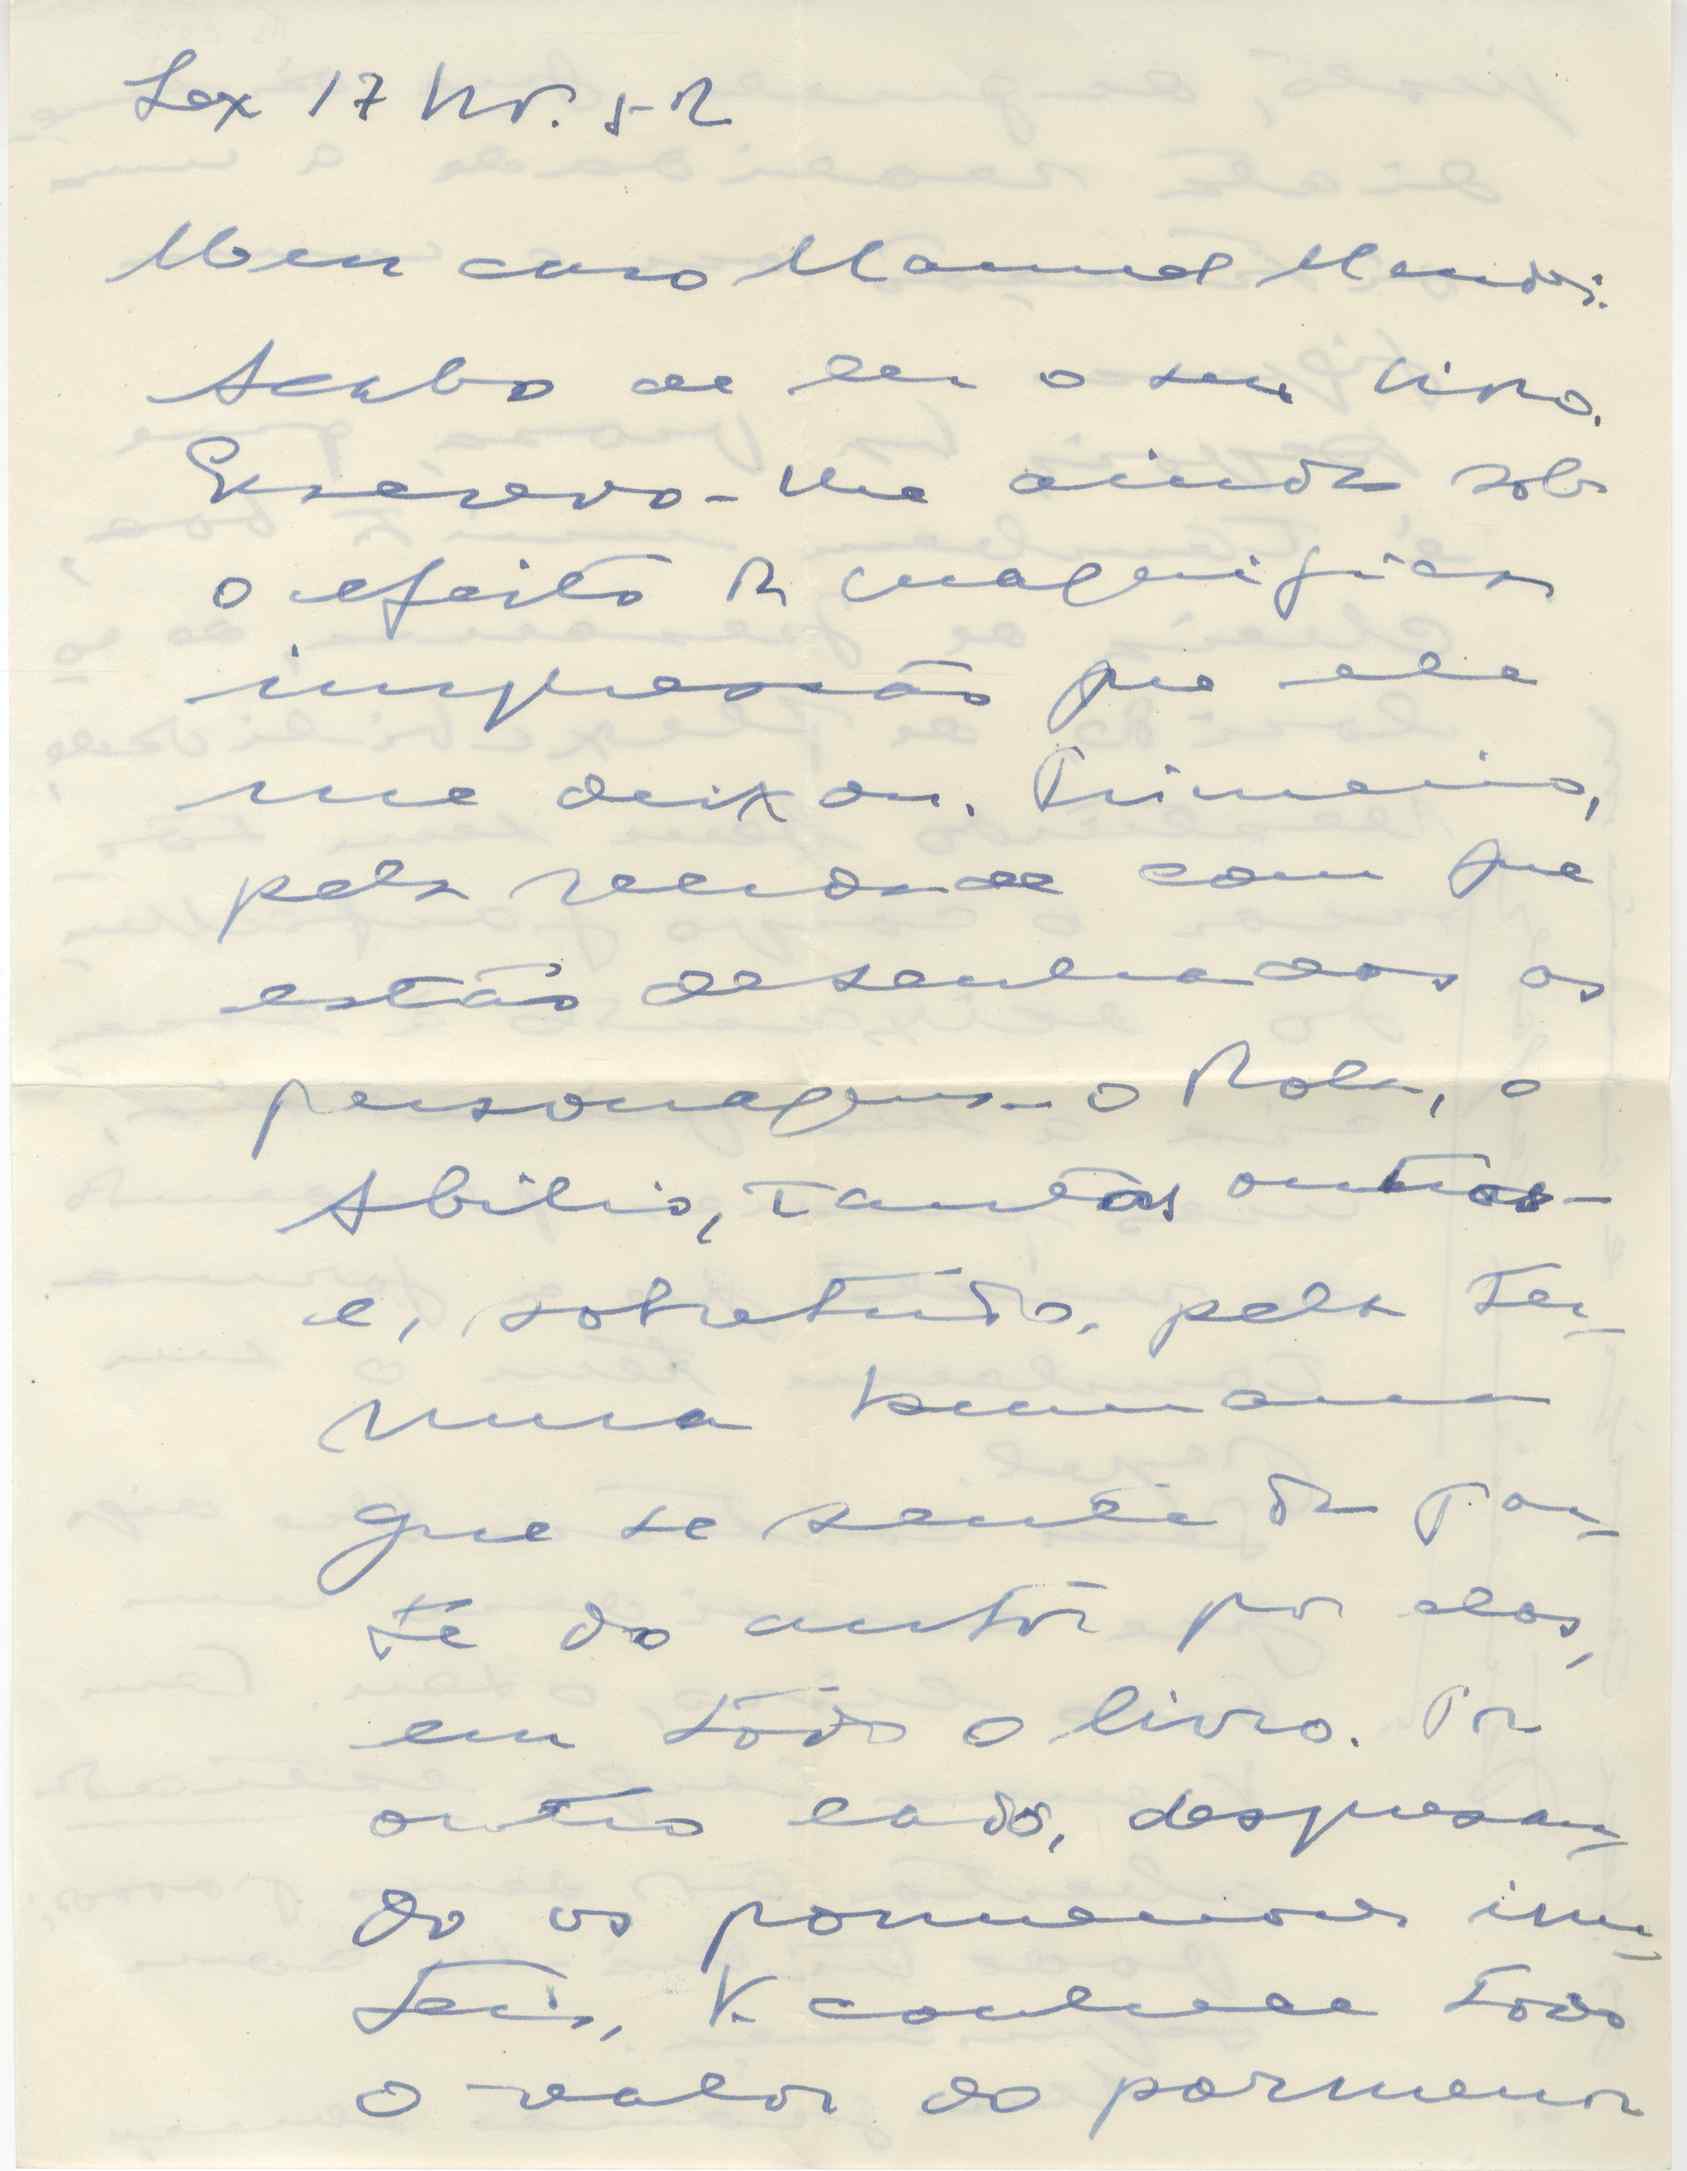 Lex 17 Nov. 52
Meu caro Manuel Mendes:
Acabo de ler o seu livro.
Escrevo-lhe ainda sob
o efeito da magnífica
impressão que ele
me deixou. Primeiro,
pela verdade com que
estão desenhados os
personagens – o Rola, o
Abílio, tantos outros –
e, sobretudo, pela ter-
nura humana
que se sente da par-
te do autor por elas,
em tôdo o livro. Por
outro lado, despresan-
do os pormenores inu-
teis, V. conhece todo
o valor do pormenor